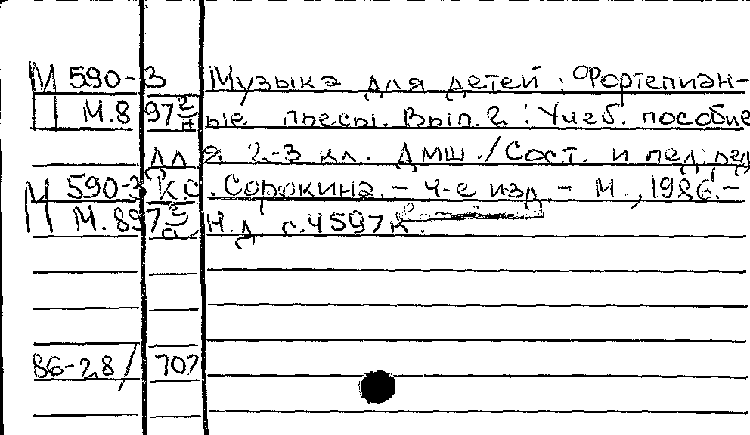 М 590-3 Музыка для детей: Фортепиан-
М.8 97 2/н ые пьесы. Вып. 2: Учеб. пособие
для 2-3 кл. ДМШ./Сост. и пед. ред.
М 590-3 К.С. Сорокина. - 4-е изд. - М., 1986.-
М. 897 Н.д. с.4597к.
86-28/707